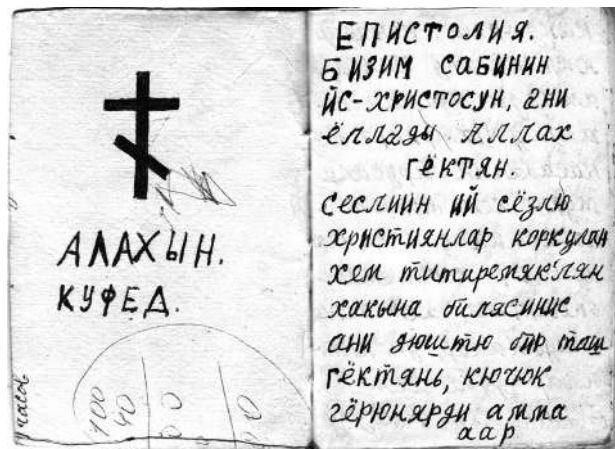 АЛАХЫН.
КУФЕД.
часов
100
40
0
0
0
ЕПИСТОЛИЯ.
БИЗИМ САБИНИН
ЙС-ХРИСТОСУН, ани
ёллады Аллах
гёктян.
сеслиин ий сёзлю
християнлар коркулан
хем титиремяк'лян
хакына билясинис
ани дюштю бир таш
гёктянь, кючюк
гёрюнярди амма
аар